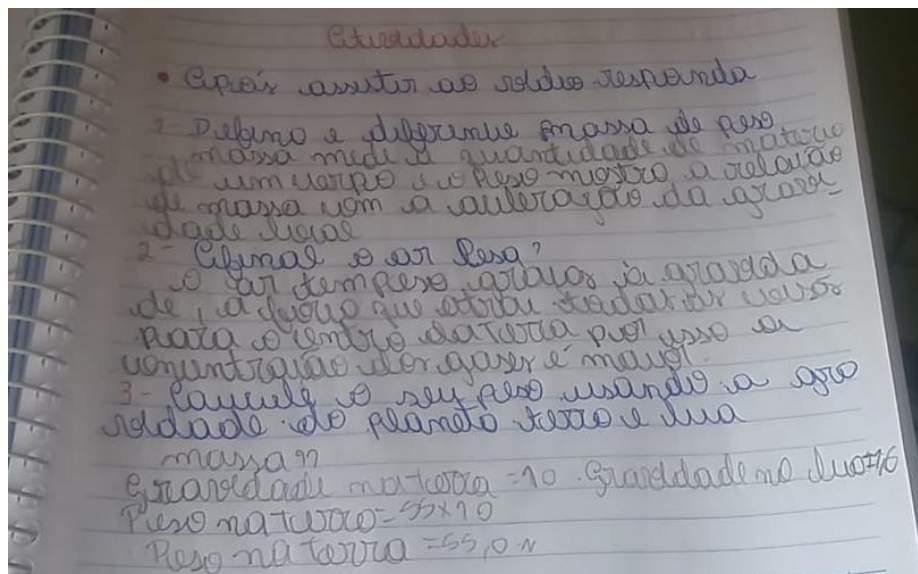 Atividades
• Após assistir ao vídeo responda
1- Defina e diferencie massa de peso
massa mede a quantidade de materia
de um corpo e o peso mostra a relação
de massa com a aceleração da gravi-
dade local
2- Afinal o ar Pesa?
O ar tem peso graças à gravida
de, a força que atrai todas as coisas
para o centro da terra por isso a
concentração dos gases é maior.
3- Calcule o seu peso usando a gra
vidade do planeta terra e lua
massa
Gravidade na terra =10. Gravidade na lua=1,6
Peso na terra=55x10
Peso na terra =55,0 N